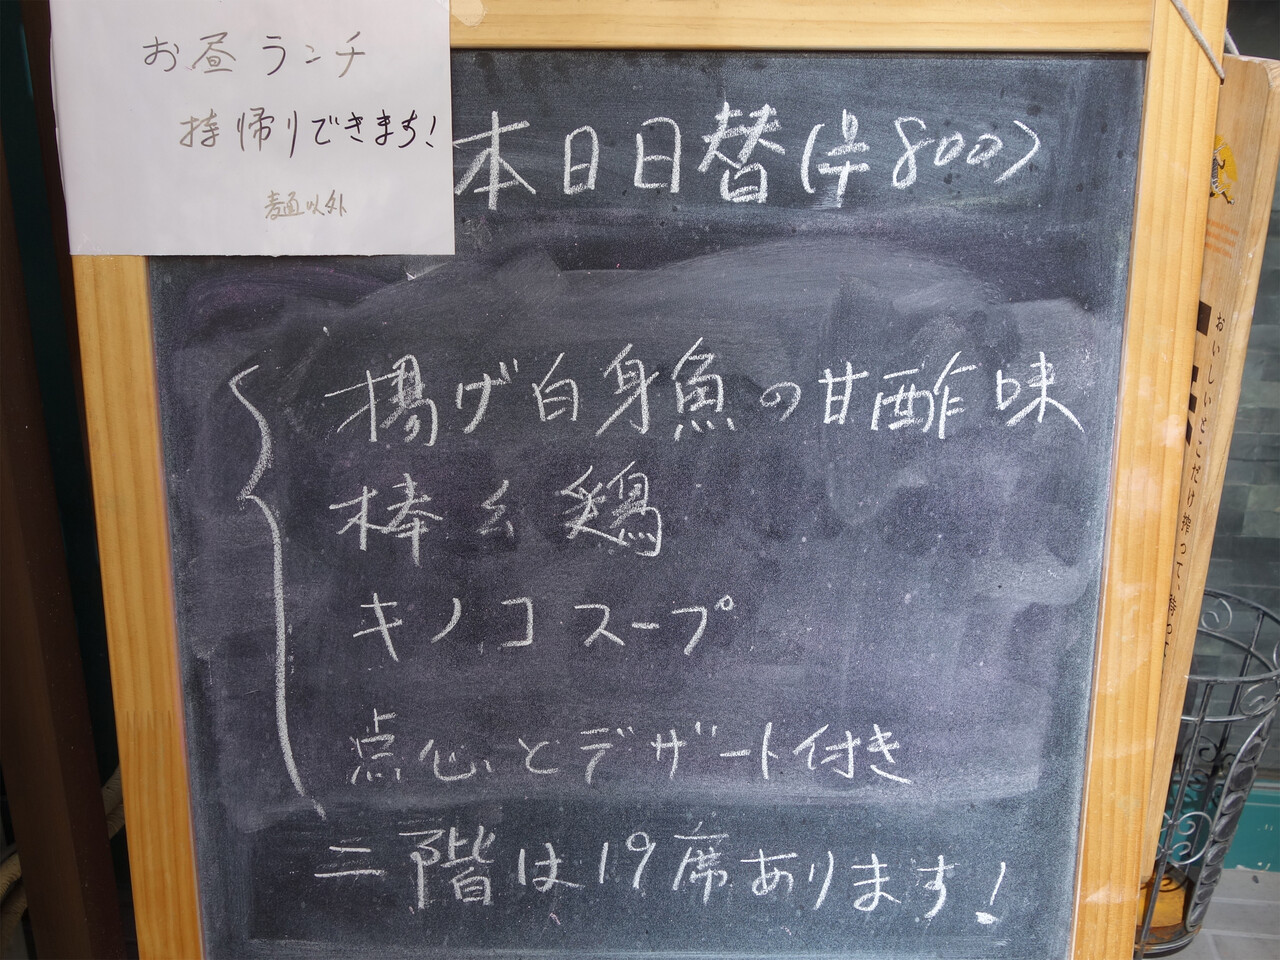 お昼ランチ
持帰りできます!
麺以外
本日日替(￥800)
揚げ白身魚の甘酢味
棒々鶏
キノコスープ
点心とデザート付き
二階は19席あります!
おいしいとこだけ搾って、